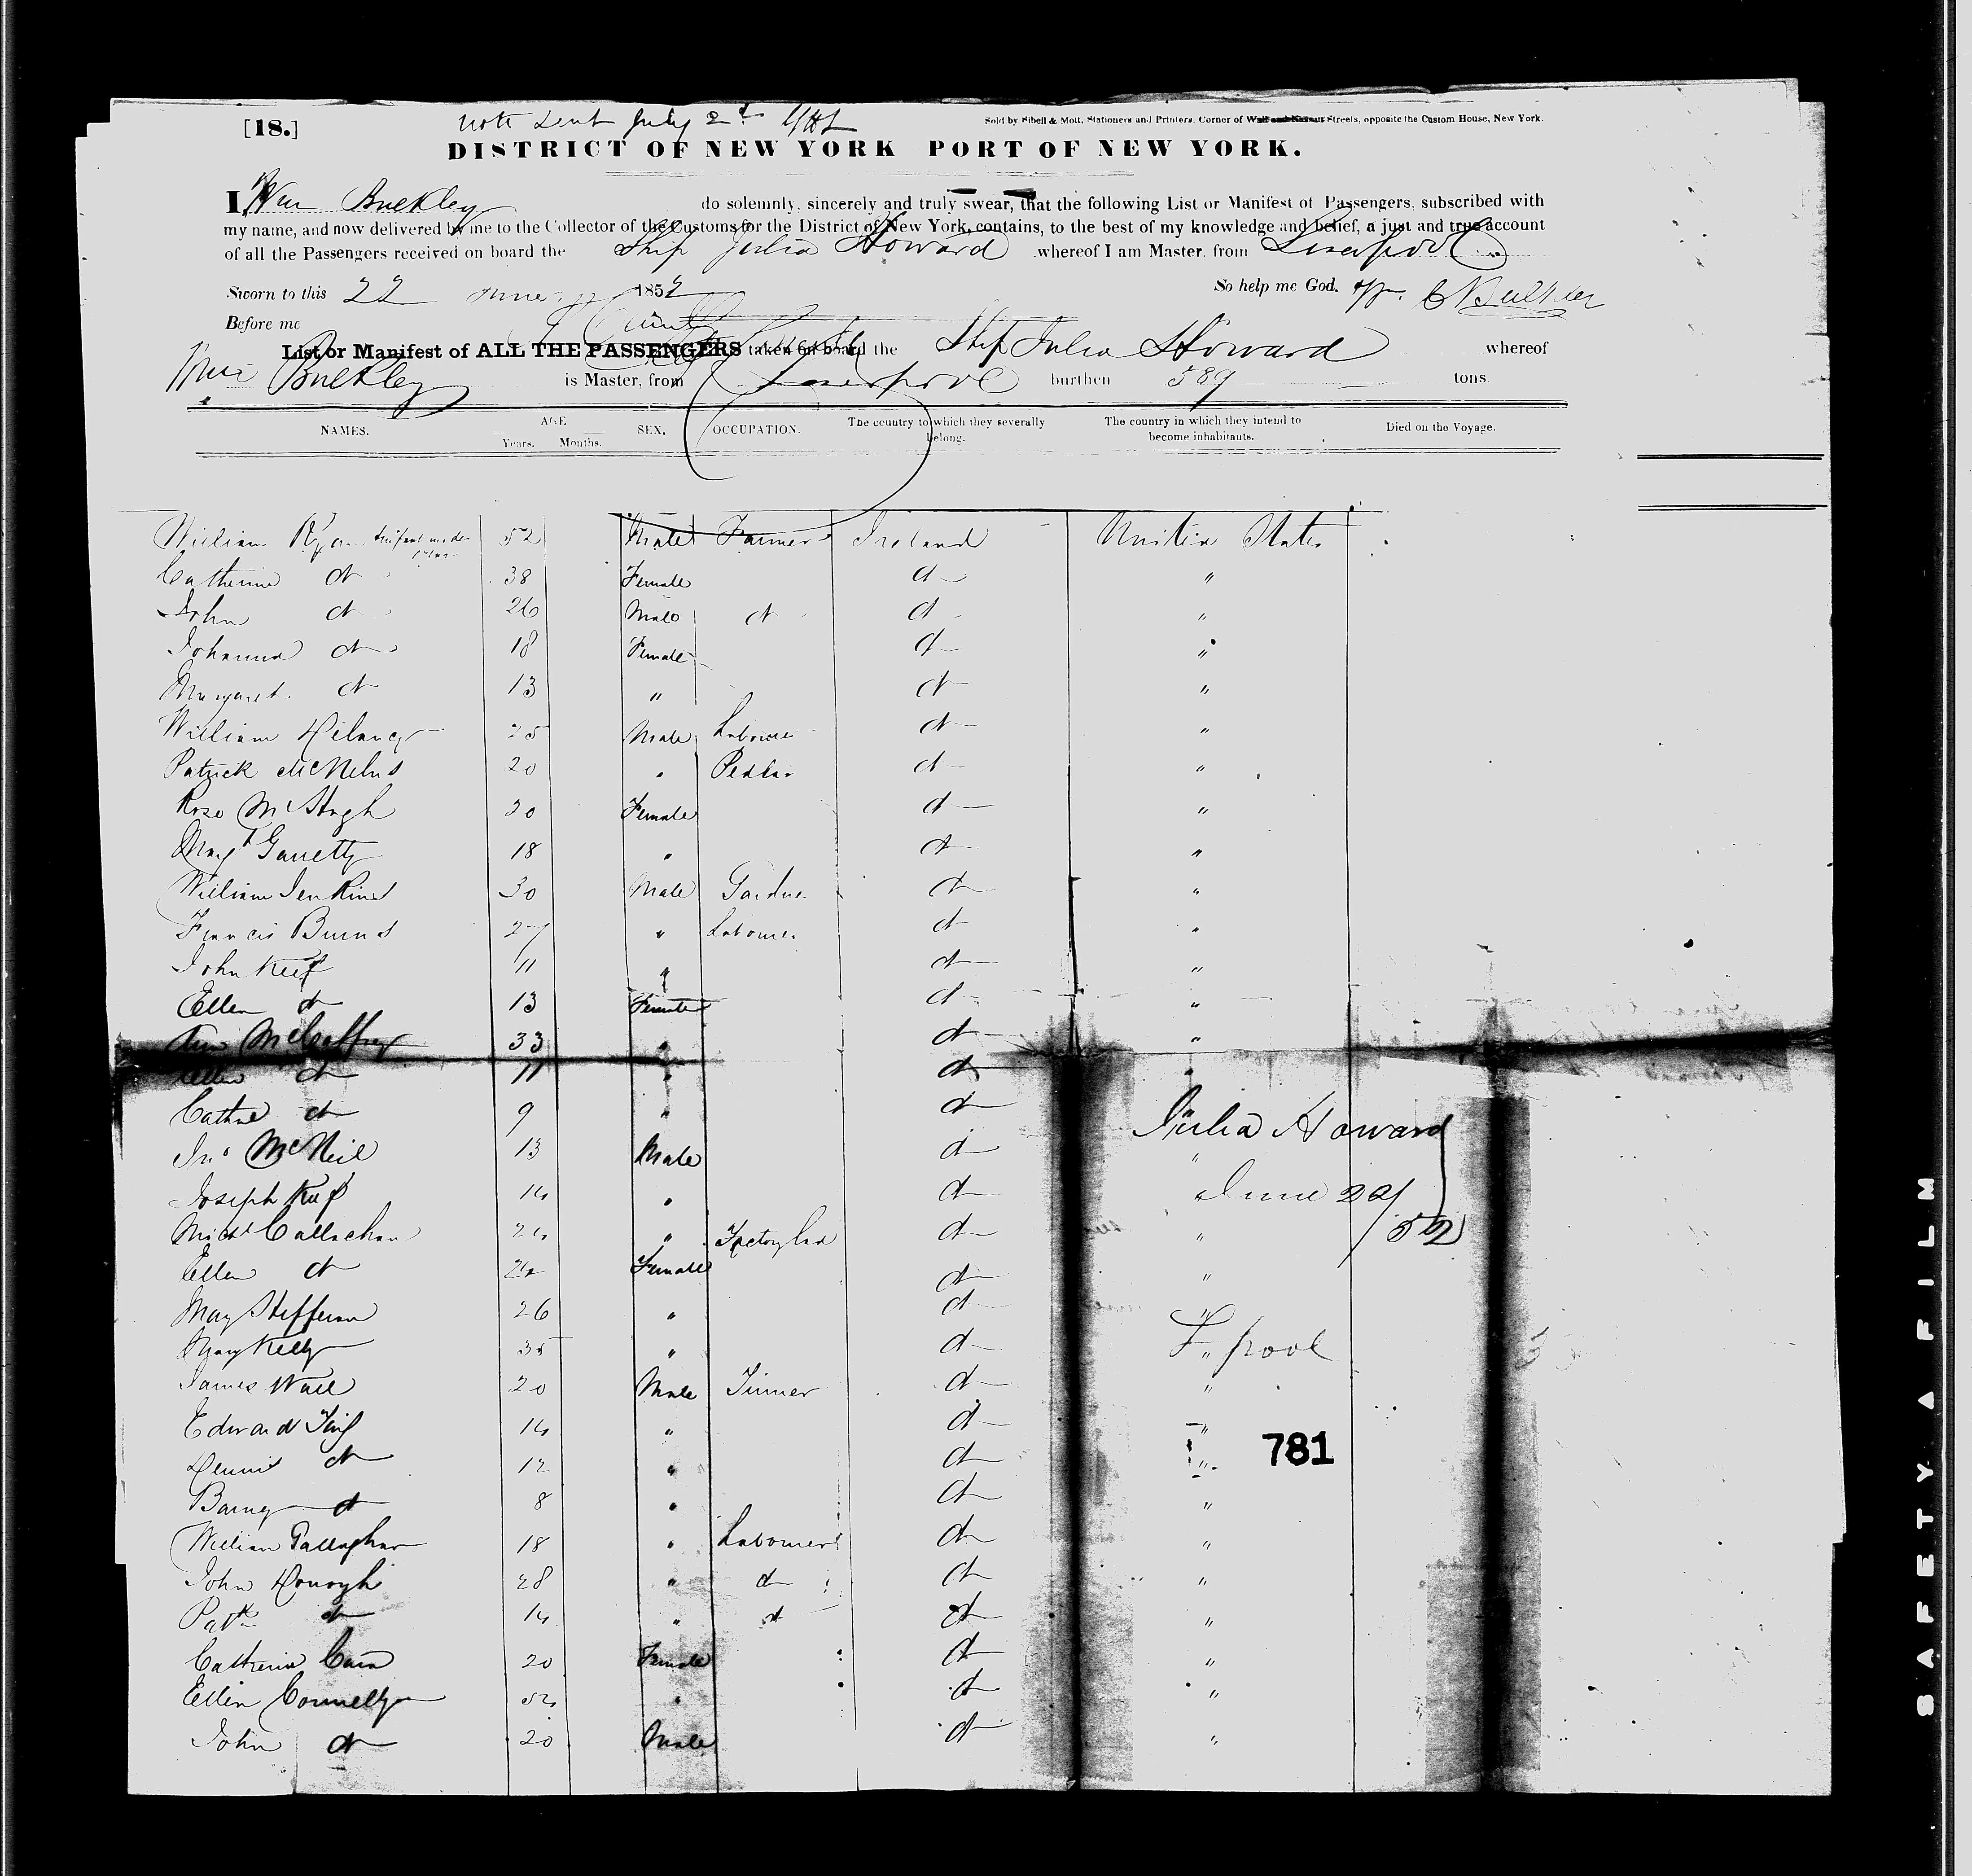 [18.] note sent July 2d
Sold by Sibell & Mott, Stationers and Printers, Corner of Wall and Nassau Streets, opposite the Custom House, New York.
DISTRICT OF NEW YORK PORT OF NEW YORK.
I, Wm Bulkley do solemnly, sincerely and truly swear, that the following List or Manifest of Passengers, subscribed with
my name, and now delivered by me to the Collector of the Customs for the District of New York, contains, to the best of my knowledge and belief, a just and true account
of all the Passengers received on board the Ship Julia Howard whereof I am Master, from Liverpool
Sworn to this 22 June 1852 So help me God. Wm. Bulkley
Before me
List or Manifest of ALL THE PASSENGERS taken on board the Ship Julia Howard whereof
Wm Bulkley is Master, from Liverpool burthen 589 tons.
NAMES. AGE Years. Months. SEX. OCCUPATION. The country to which they severally belong. The country in which they intend to become inhabitants. Died on the Voyage.
William Ryan 52 Male Farmer Ireland United States
Catherine do 38 Female do "
John do 26 Male do do "
Johanna do 18 Female do "
Margaret do 13 " do "
William Delancy 25 Male Labourer do "
Patrick 20 " Pedlar do "
Rose McHugh 20 Female do "
Margt Garretty 18 " do "
William Jenkins 30 Male Gardner do "
Francis Burns 27 " Labourer do "
John Keef 11 " do "
Ellen do 13 Female do "
Ann McCaffrey 33 " do "
Ellen do 11 " do "
Cathne do 9 " do
Julia Howard
Jno McNeil 13 Male do "
Joseph Keef 14 " do "
June 22/52
Michl Callaghan 24 " Factory Lad do "
Ellen do 24 Female do "
Mary Heffernan 26 " do "
Mary Kelly 35 " do "
L pool
James Wall 20 Male Tinner do "
Edward 14 " do "
781
Dennis do 12 " do "
Barney do 8 " do "
William Gallaghar 18 " Labourer do "
John Donogh 28 " do do "
Patk do 14 " do do "
Catherine 20 Female do "
Ellen Connelly " do "
John do 20 Male do "
SAFETY A FILM